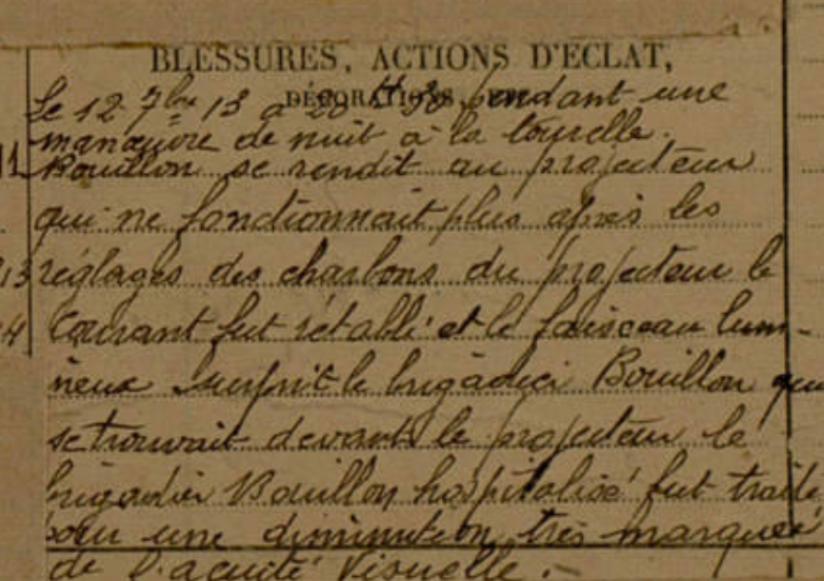 BLESSURES, ACTIONS D'ECLAT,
DÉCORATIONS, ETC.
Le 12 7bre 13 a 20 H 30 pendant une
manœuvre de nuit à la tourelle.
Bouillon se rendit au projecteur
qui ne fonctionnait plus après les
réglages des charbons du projecteur le
Courant fut rétabli et le faisceau lumi-
neux surprit le brigadier Bouillon qui
se trouvait devant le projecteur le
brigadier Bouillon hospitalisé fut traité
pour une diminution très marquée
de l'acuité visuelle.